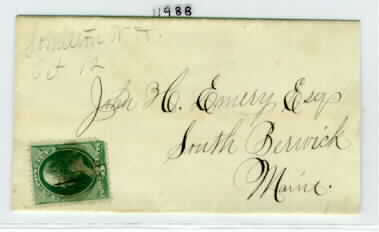 11988
Oct 12
John H. Emery Esq
South Berwick
Maine.